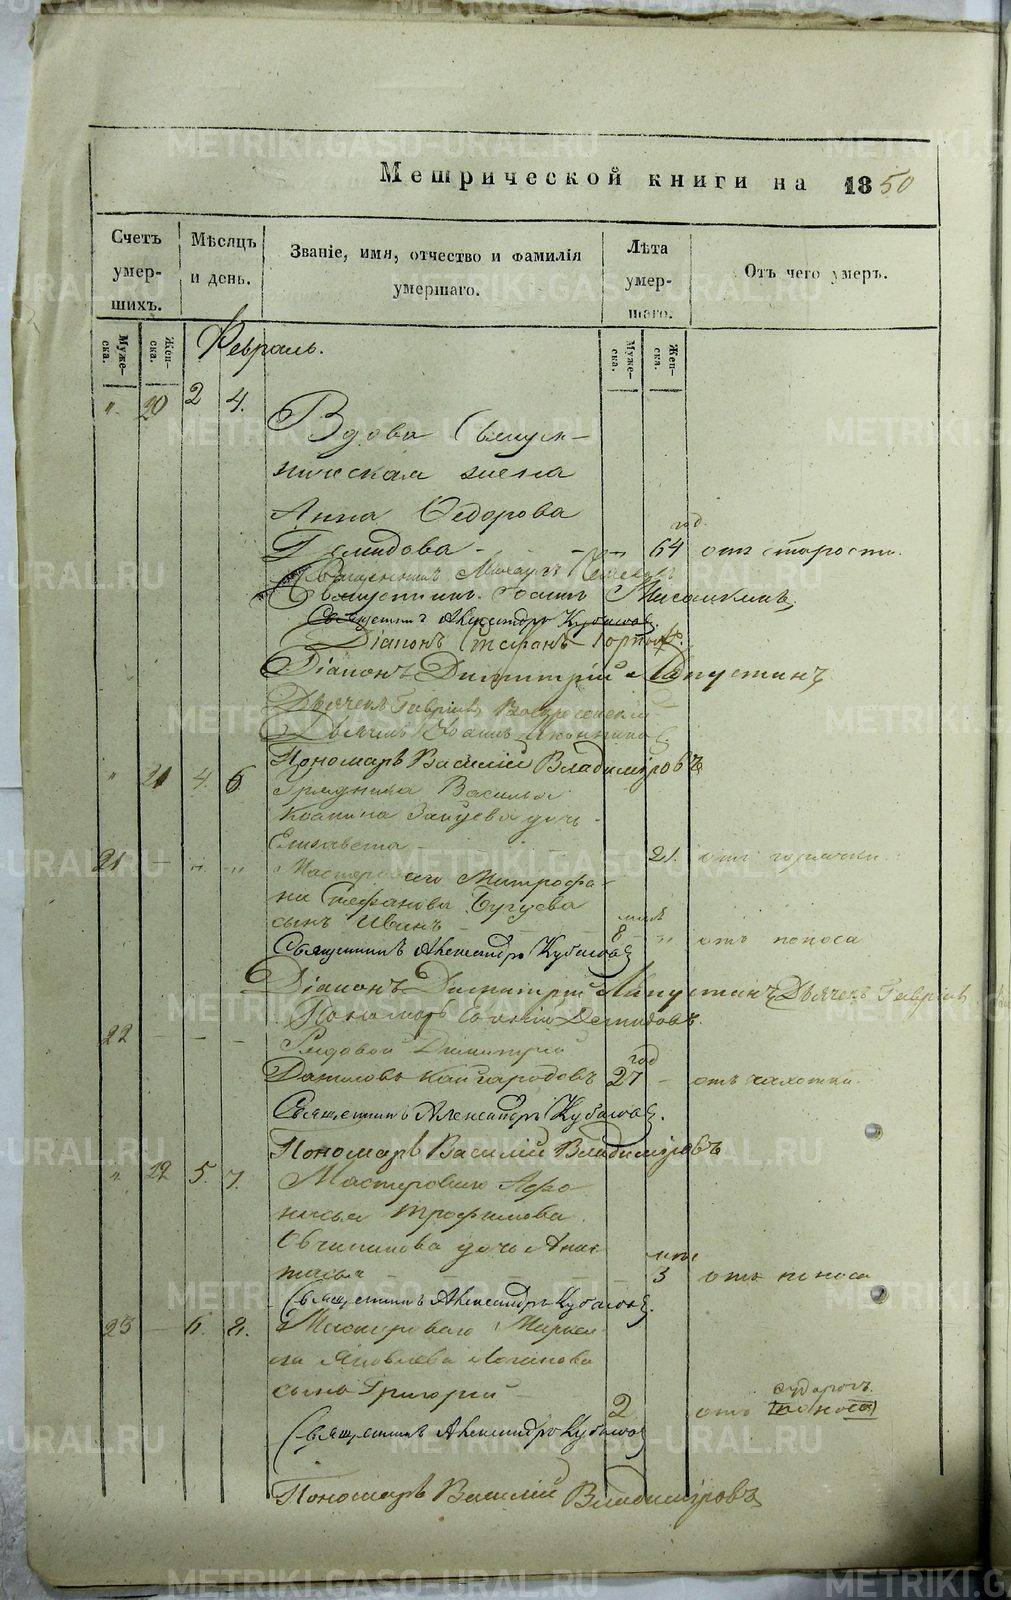 Метрической книги на 1850
Счетъ умер-шихъ.
Мѣсяцъ и день.
Званіе, имя, отчество и фамилія умершаго.
Лѣта умер-шаго.
Отъ чего умеръ.
Муже-ска.
Жен-ска.
Муже-ска.
Жен-ска.
Февраль.
„ 20 2 4.
Вдова Священ-
ническая жена
Анна Ѳедорова
год.
Демидова - 64 отъ старости.
Священникъ
Священникъ Іоаннъ
Священникъ Александръ Кубасовъ.
Діаконъ Стефанъ
Діаконъ Димитрій Лапустинъ
Дьячекъ Гавріилъ Воскресенскій
Дьячекъ Іоаннъ
Пономарь Василій Владиміровъ
„ 21 4. 6.
Василья
Зайцева дочь
Елизавета - 21. отъ горячки.
21 — „ „ Мастероваго Митрофа-
на Стефанова
мѣс
сынъ Иванъ 8 „ отъ поноса
Священникъ Александръ Кубасовъ
Діаконъ Димитрій Лапустинъ Дьячекъ Гавріилъ
Пономарь Демидовъ.
22 — — — Рядовой Димитрій
год
Даниловъ Кайгородовъ 27 - отъ чахотки.
Священникъ Александръ Кубасовъ.
Пономарь Василій Владиміровъ
„ 22 5. 7. Мастероваго Афо
насья Трофимова
Овчинникова дочь Анас-
тасья 3 отъ поноса
Священникъ Александръ Кубасовъ.
23 — 6. 8. Мастероваго Марке-
ла Яковлева
судорогъ.
сынъ Григорій - 2 отъ поноса
Священникъ Александръ Кубасовъ
Пономарь Василій Владиміровъ
METRIKI.GASO-URAL.RU